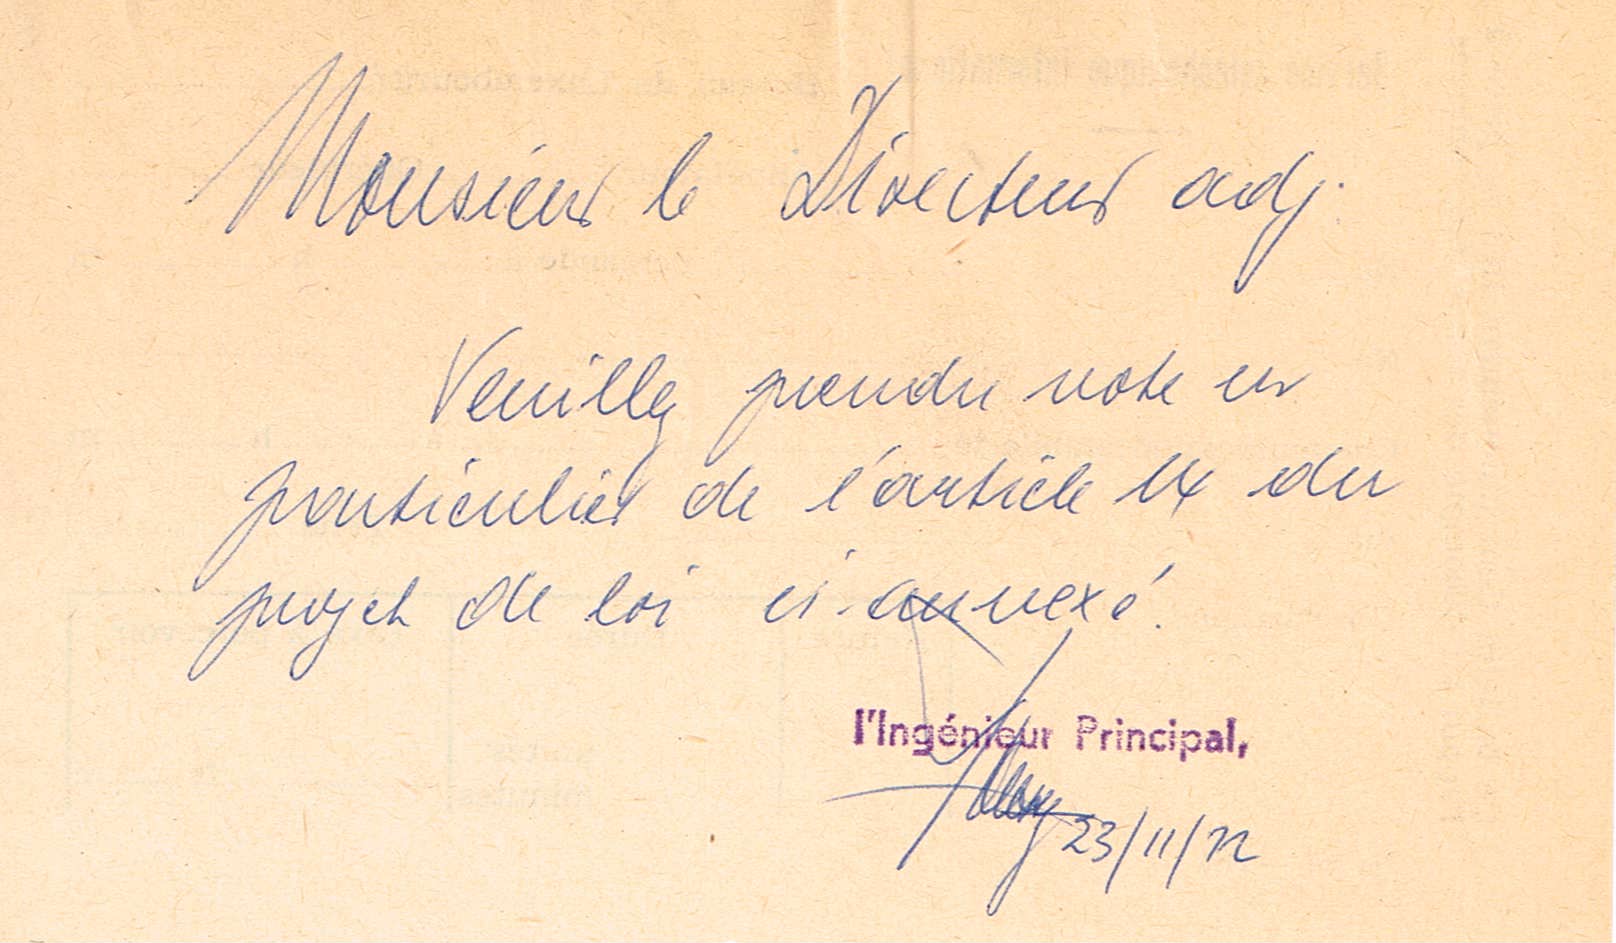 Monsieur le Directeur adj.
Veuillez prendre note en
particulier de l'article IX du
projet de loi ci-annexé.
l'Ingénieur Principal,
23/11/72